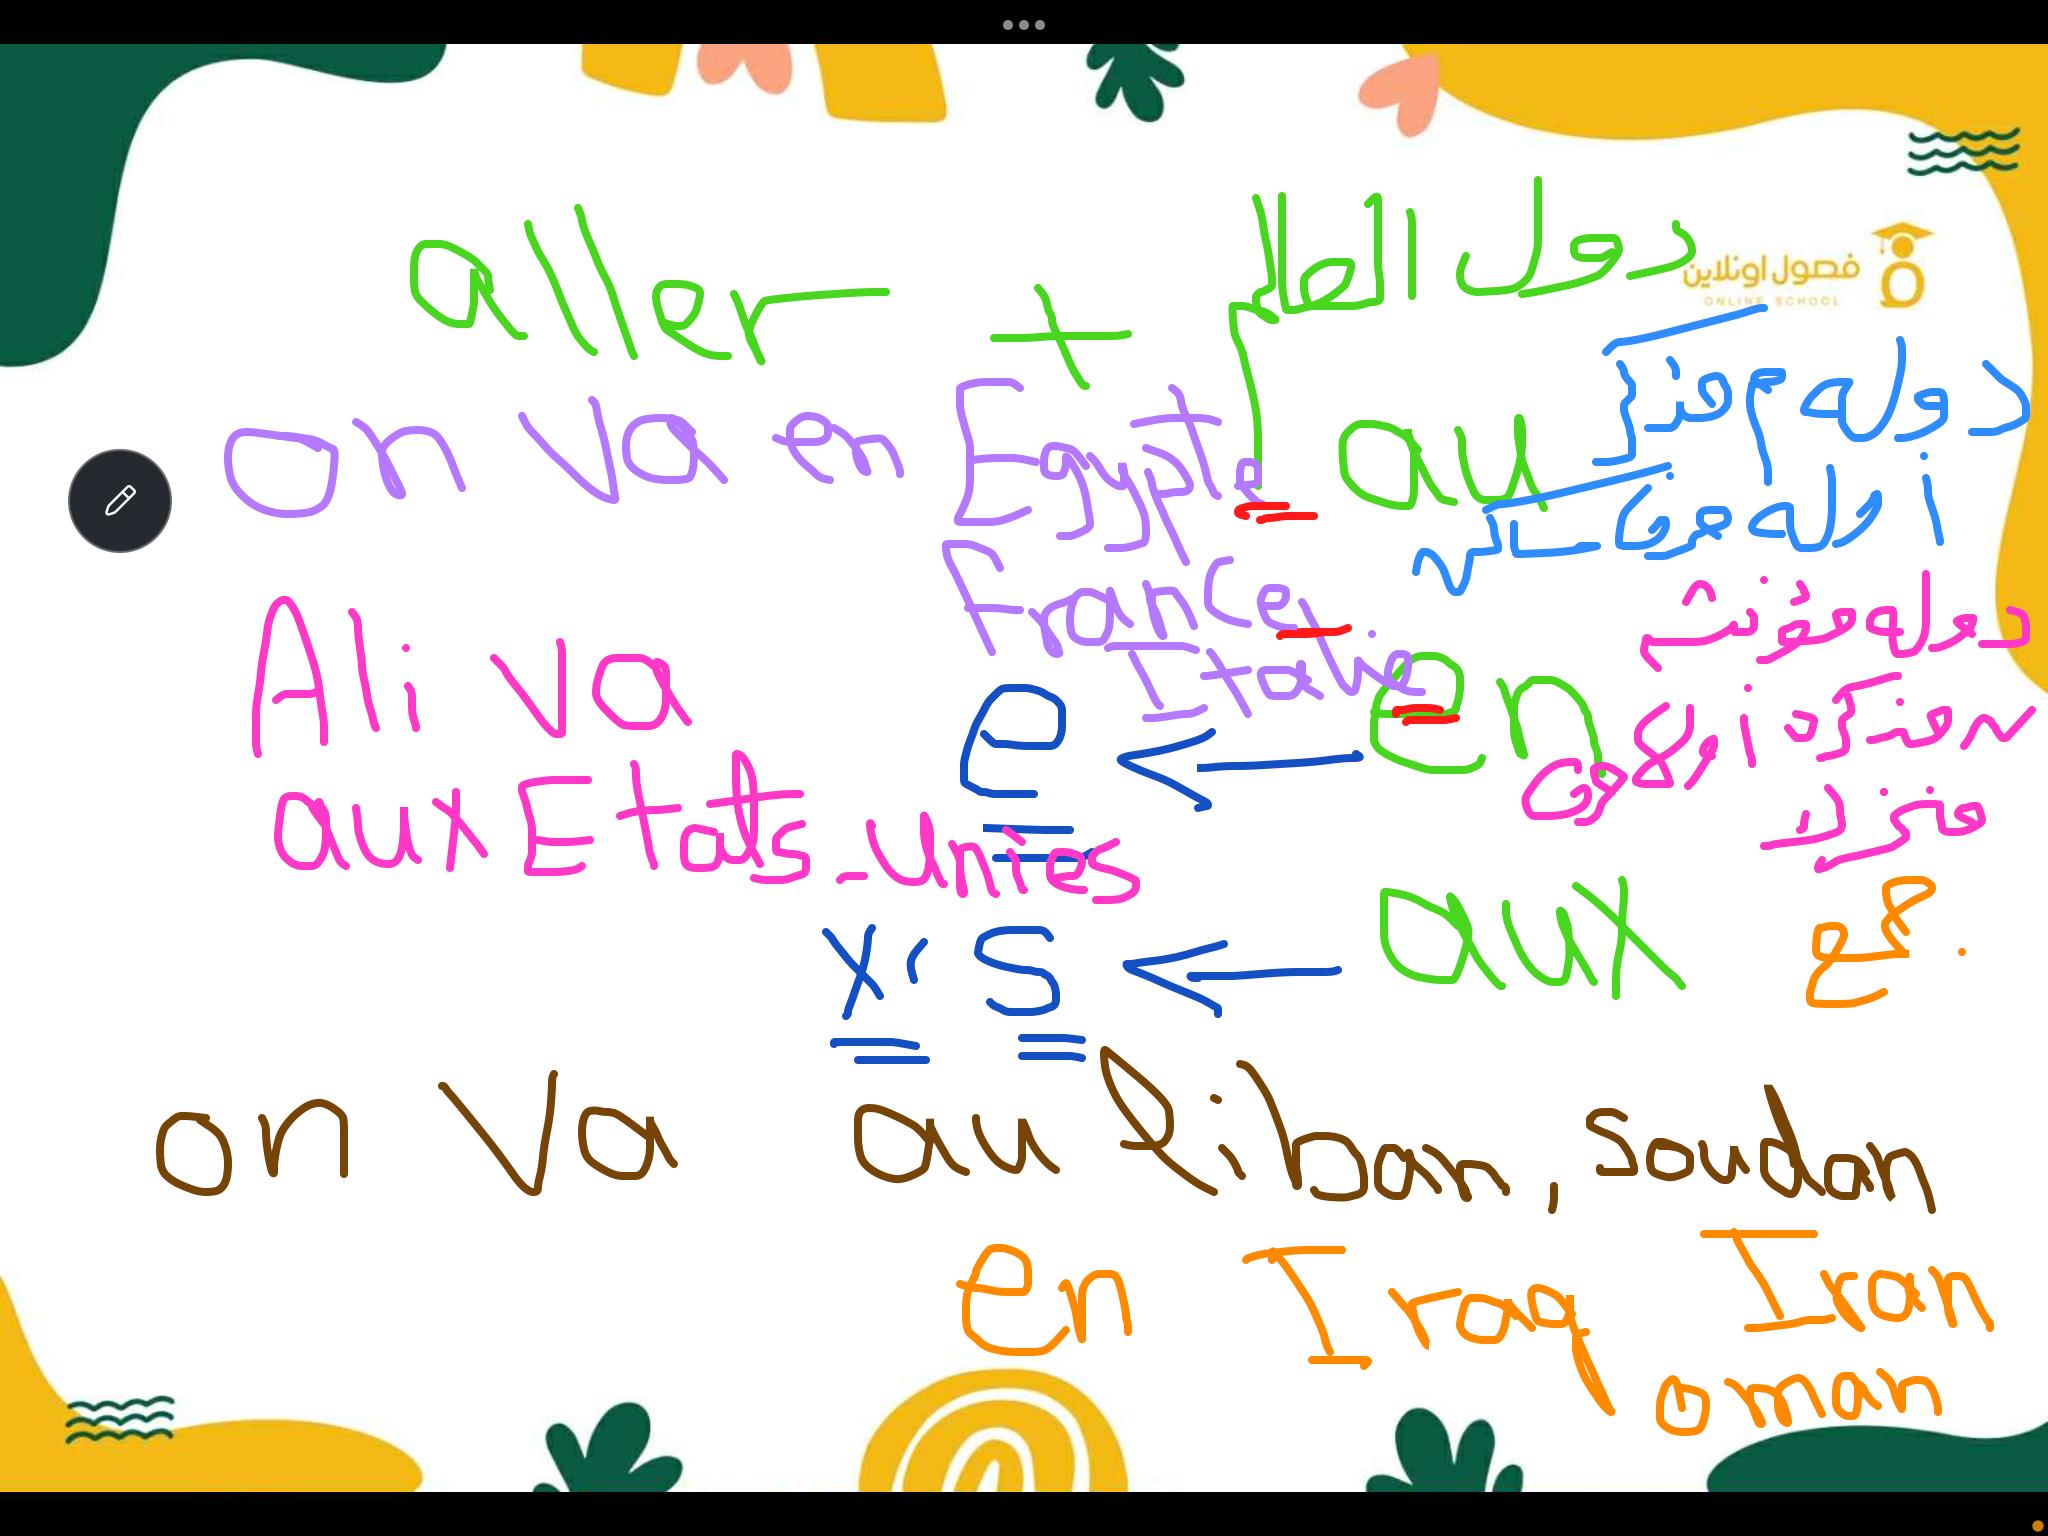 aller + دول العالم
فصول اونلاين
ONLINE SCHOOL
on va en Egypte
France
Italie
au دوله مفرد مذكر
أوله حرف ساكن
Ali va
aux Etats-unies
e ← en دوله مؤنث
مفرد مذكر أوله
متحرك
x، s ← aux جمع
on va au liban, soudan
en Iraq Iran
oman